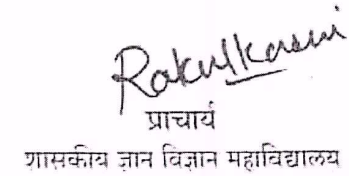 प्राचार्य
शासकीय ज्ञान विज्ञान महाविद्यालय